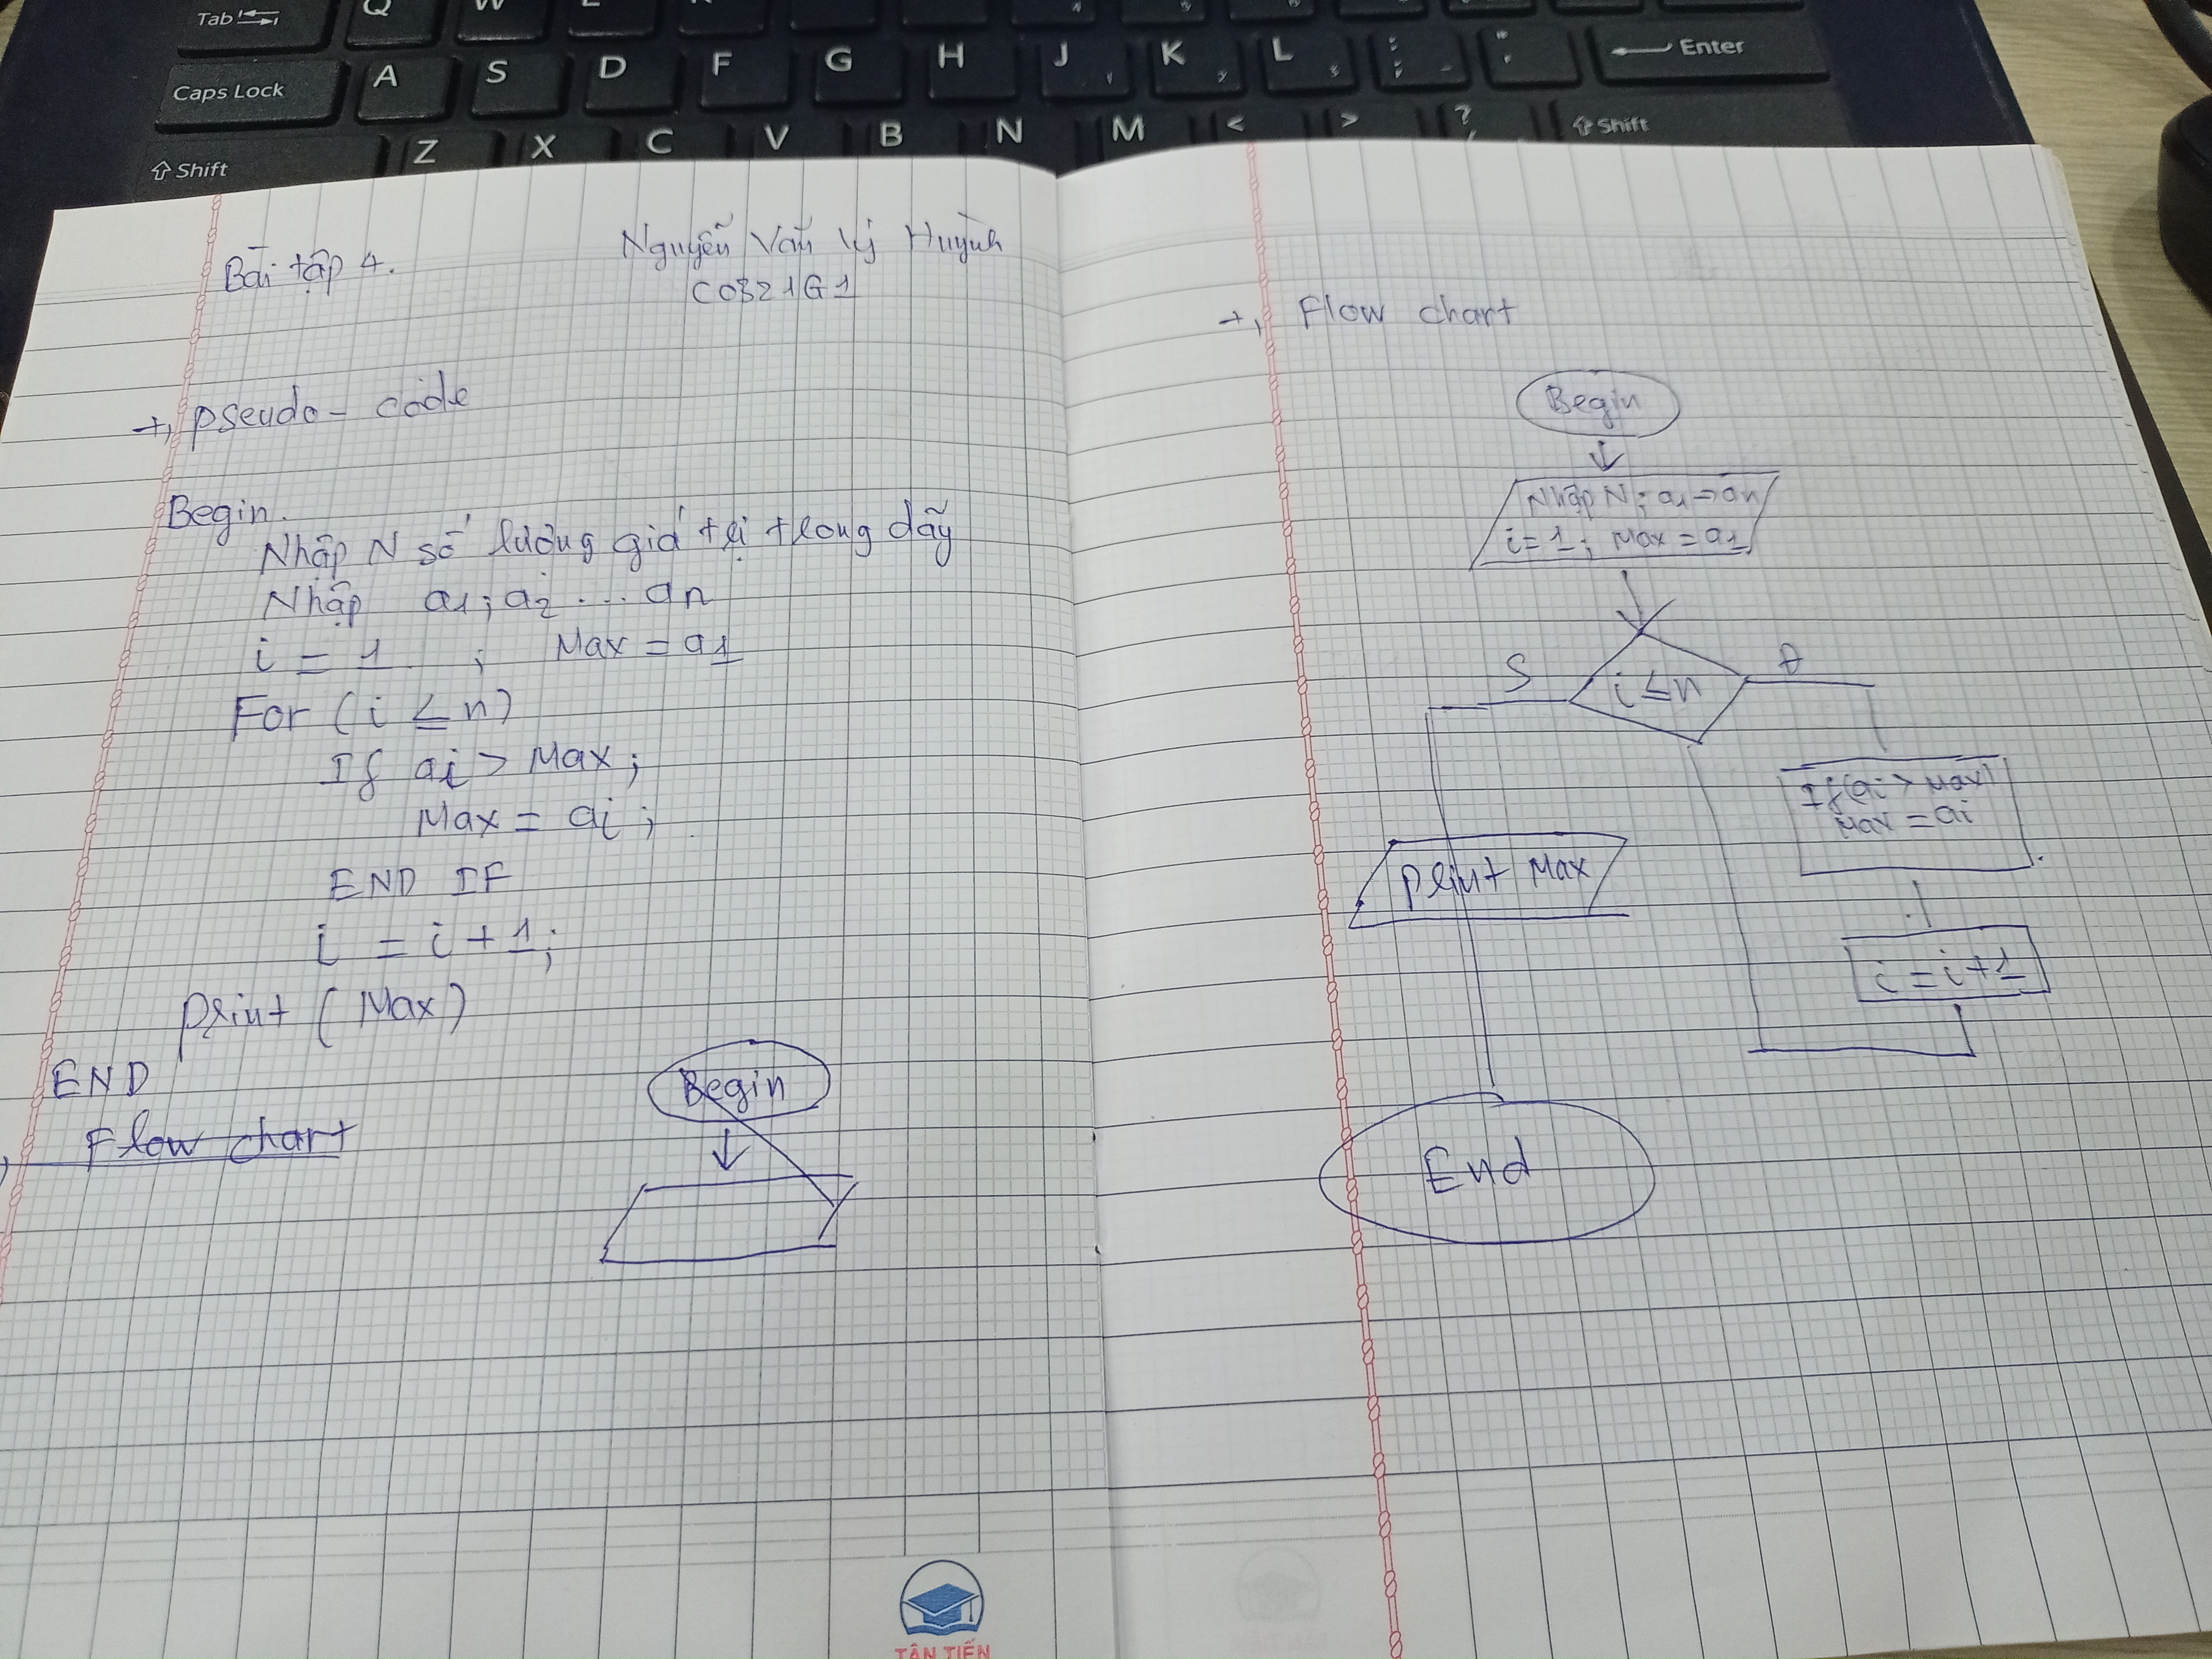 Tab
Q
W
Caps Lock
A
S
D
F
G
H
J
K
L
Enter
Shift
Z
X
C
V
B
N
M
<
>
?
Shift
Bài tập 4.
Nguyễn Văn Vỹ Huỳnh
C0321G1
+, Pseudo - code
Begin.
Nhập N số lượng giá trị trong dãy
Nhập a1; a2 ... an
i = 1 ; Max = a1
For (i ≤ n)
If ai > Max;
Max = ai;
END IF
i = i + 1;
print (Max)
END
Flow chart
Begin
TÂN TIẾN
+, Flow chart
Begin
Nhập N; a1 → an
i = 1; Max = a1
S
i ≤ n
Đ
If(ai > Max)
Max = ai
Print Max
i = i + 1
End